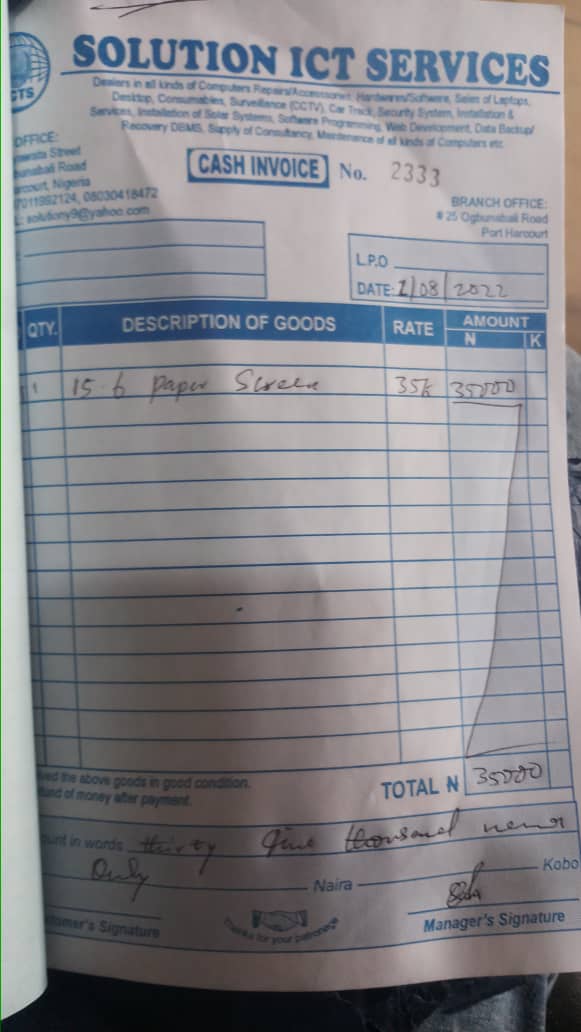 SOLUTION ICT SERVICES
CTS
Dealers in all kinds of Computers Repairs/Accessories, Hardwares/Software, Sales of Laptops,
Desktop, Consumables, Surveillance (CCTV), Car Track, Security System, Installation &
Services, Installation of Solar Systems, Software Programming, Web Development, Data Backup/
Recovery DBMS, Supply of Consultancy, Maintenance of all kinds of Computers etc.
OFFICE:
Street
Road
Nigeria
08030418472
solutiony9@yahoo.com
CASH INVOICE No. 2333
BRANCH OFFICE:
# 25 Ogbunabali Road
Port Harcourt
L.P.O
DATE: 1/08/2022
QTY. DESCRIPTION OF GOODS RATE AMOUNT
N K
1 15.6 paper Screen 35k 35000
the above goods in good condition.
of money after payment.
TOTAL N 35000
in words thirty five thousand
Only
Naira Kobo
Signature
Thanks for your patronage
Manager's Signature